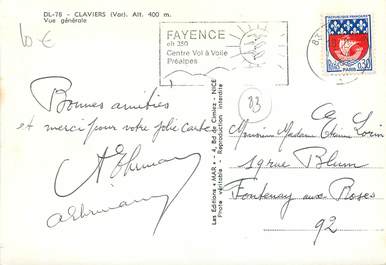 DL-78 - CLAVIERS (Var). Alt. 400 m.
Vue générale
10 €
FAYENCE
alt 350
Centre Vol à Voile
Préalpes
83
REPUBLIQUE FRANÇAISE
0,30
PARIS
Les Editions "MAR" - 4, Bd de Cimiez - NICE
Photo véritable - Reproduction interdite
83
Bonnes amitiés
et merci pour votre jolie carte
Monsieur Madame Lorin
19 rue Blum
Fontenay aux Roses
92